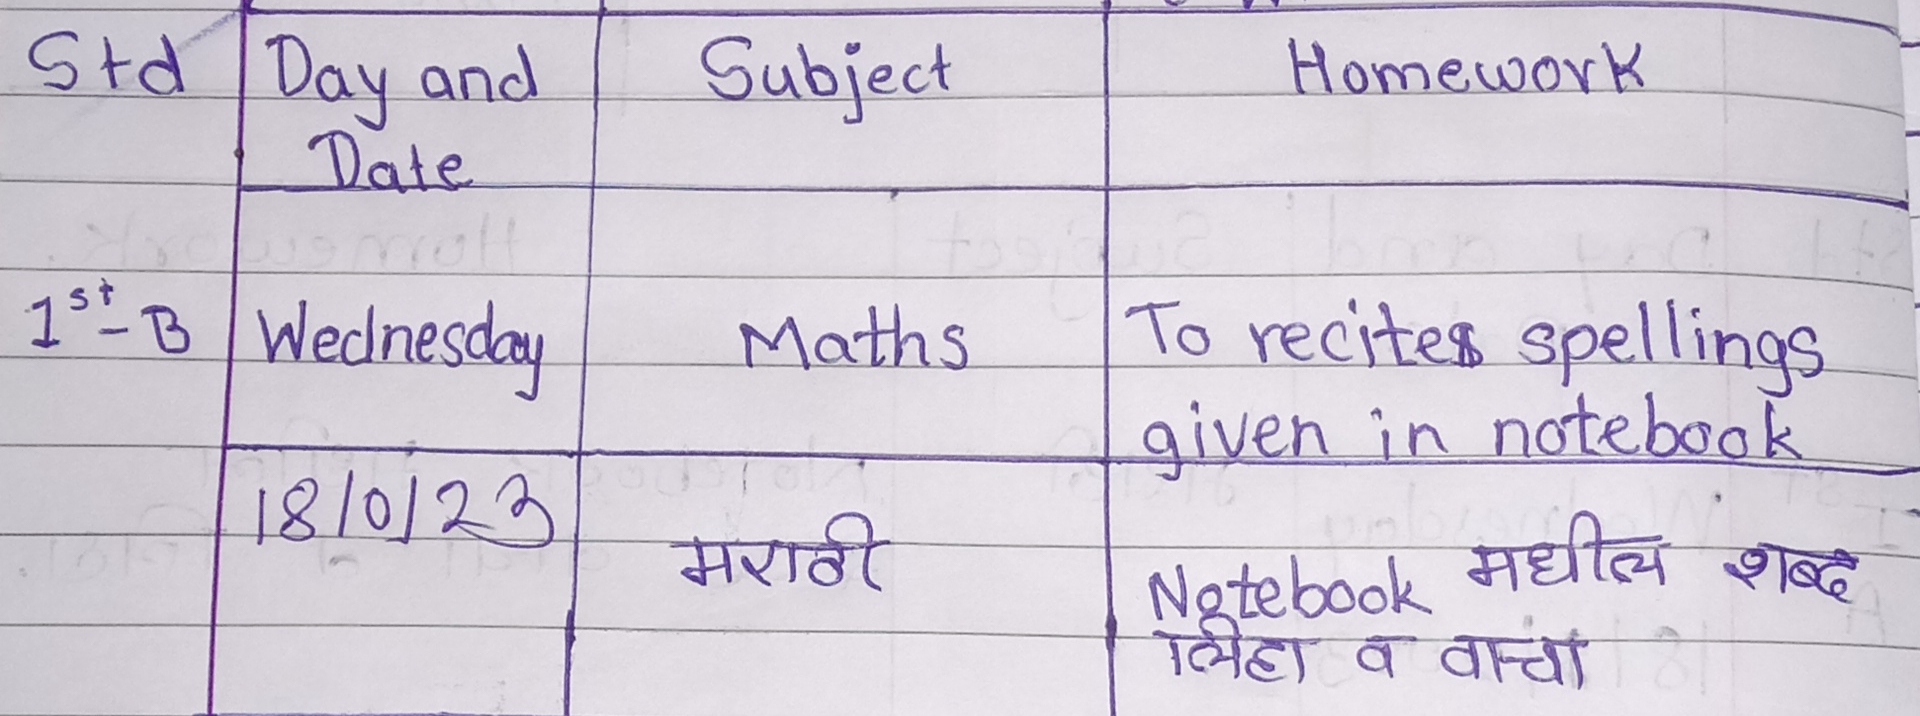 Std Day and Subject Homework
Date
1st - B Wednesday Maths To recites spellings
given in notebook
18/0/23
मराठी Notebook मधील शब्द
लिहा व वाचा